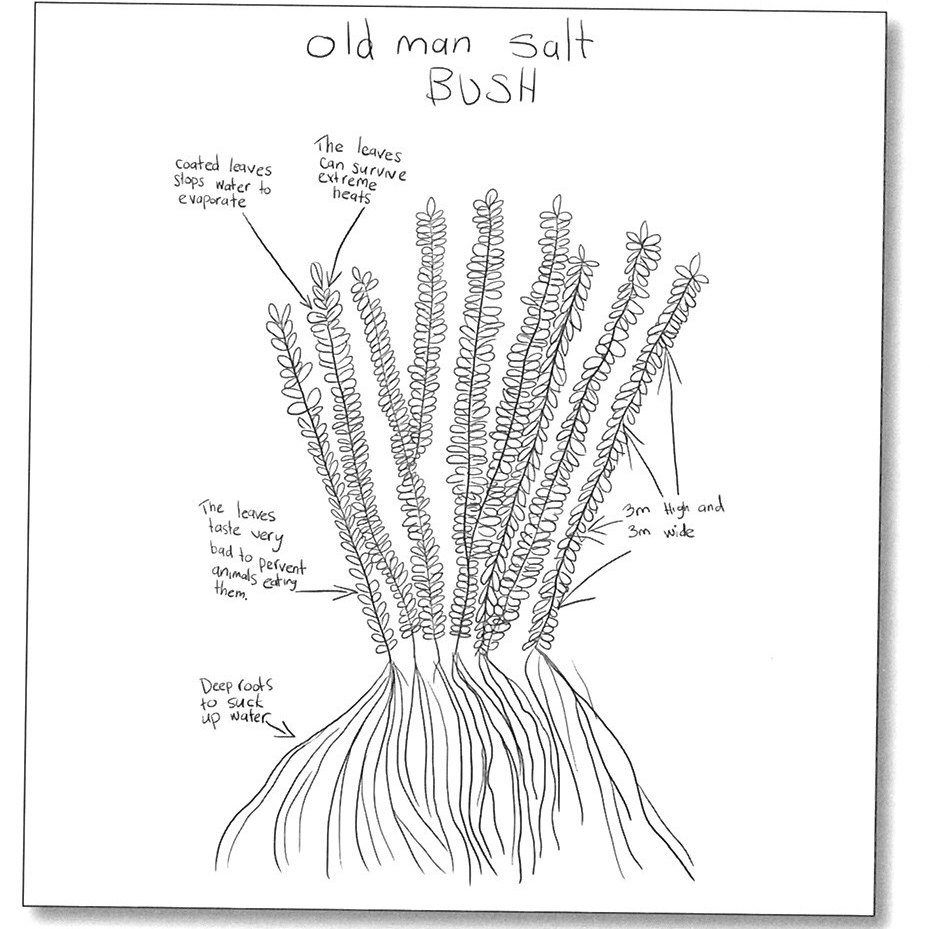 old man salt
BUSH
coated leaves
stops water to
evaporate
The leaves
can survive
extreme
heats
The leaves
taste very
bad to pervent
animals eating
them.
3m High and
3m wide
Deep roots
to suck
up water